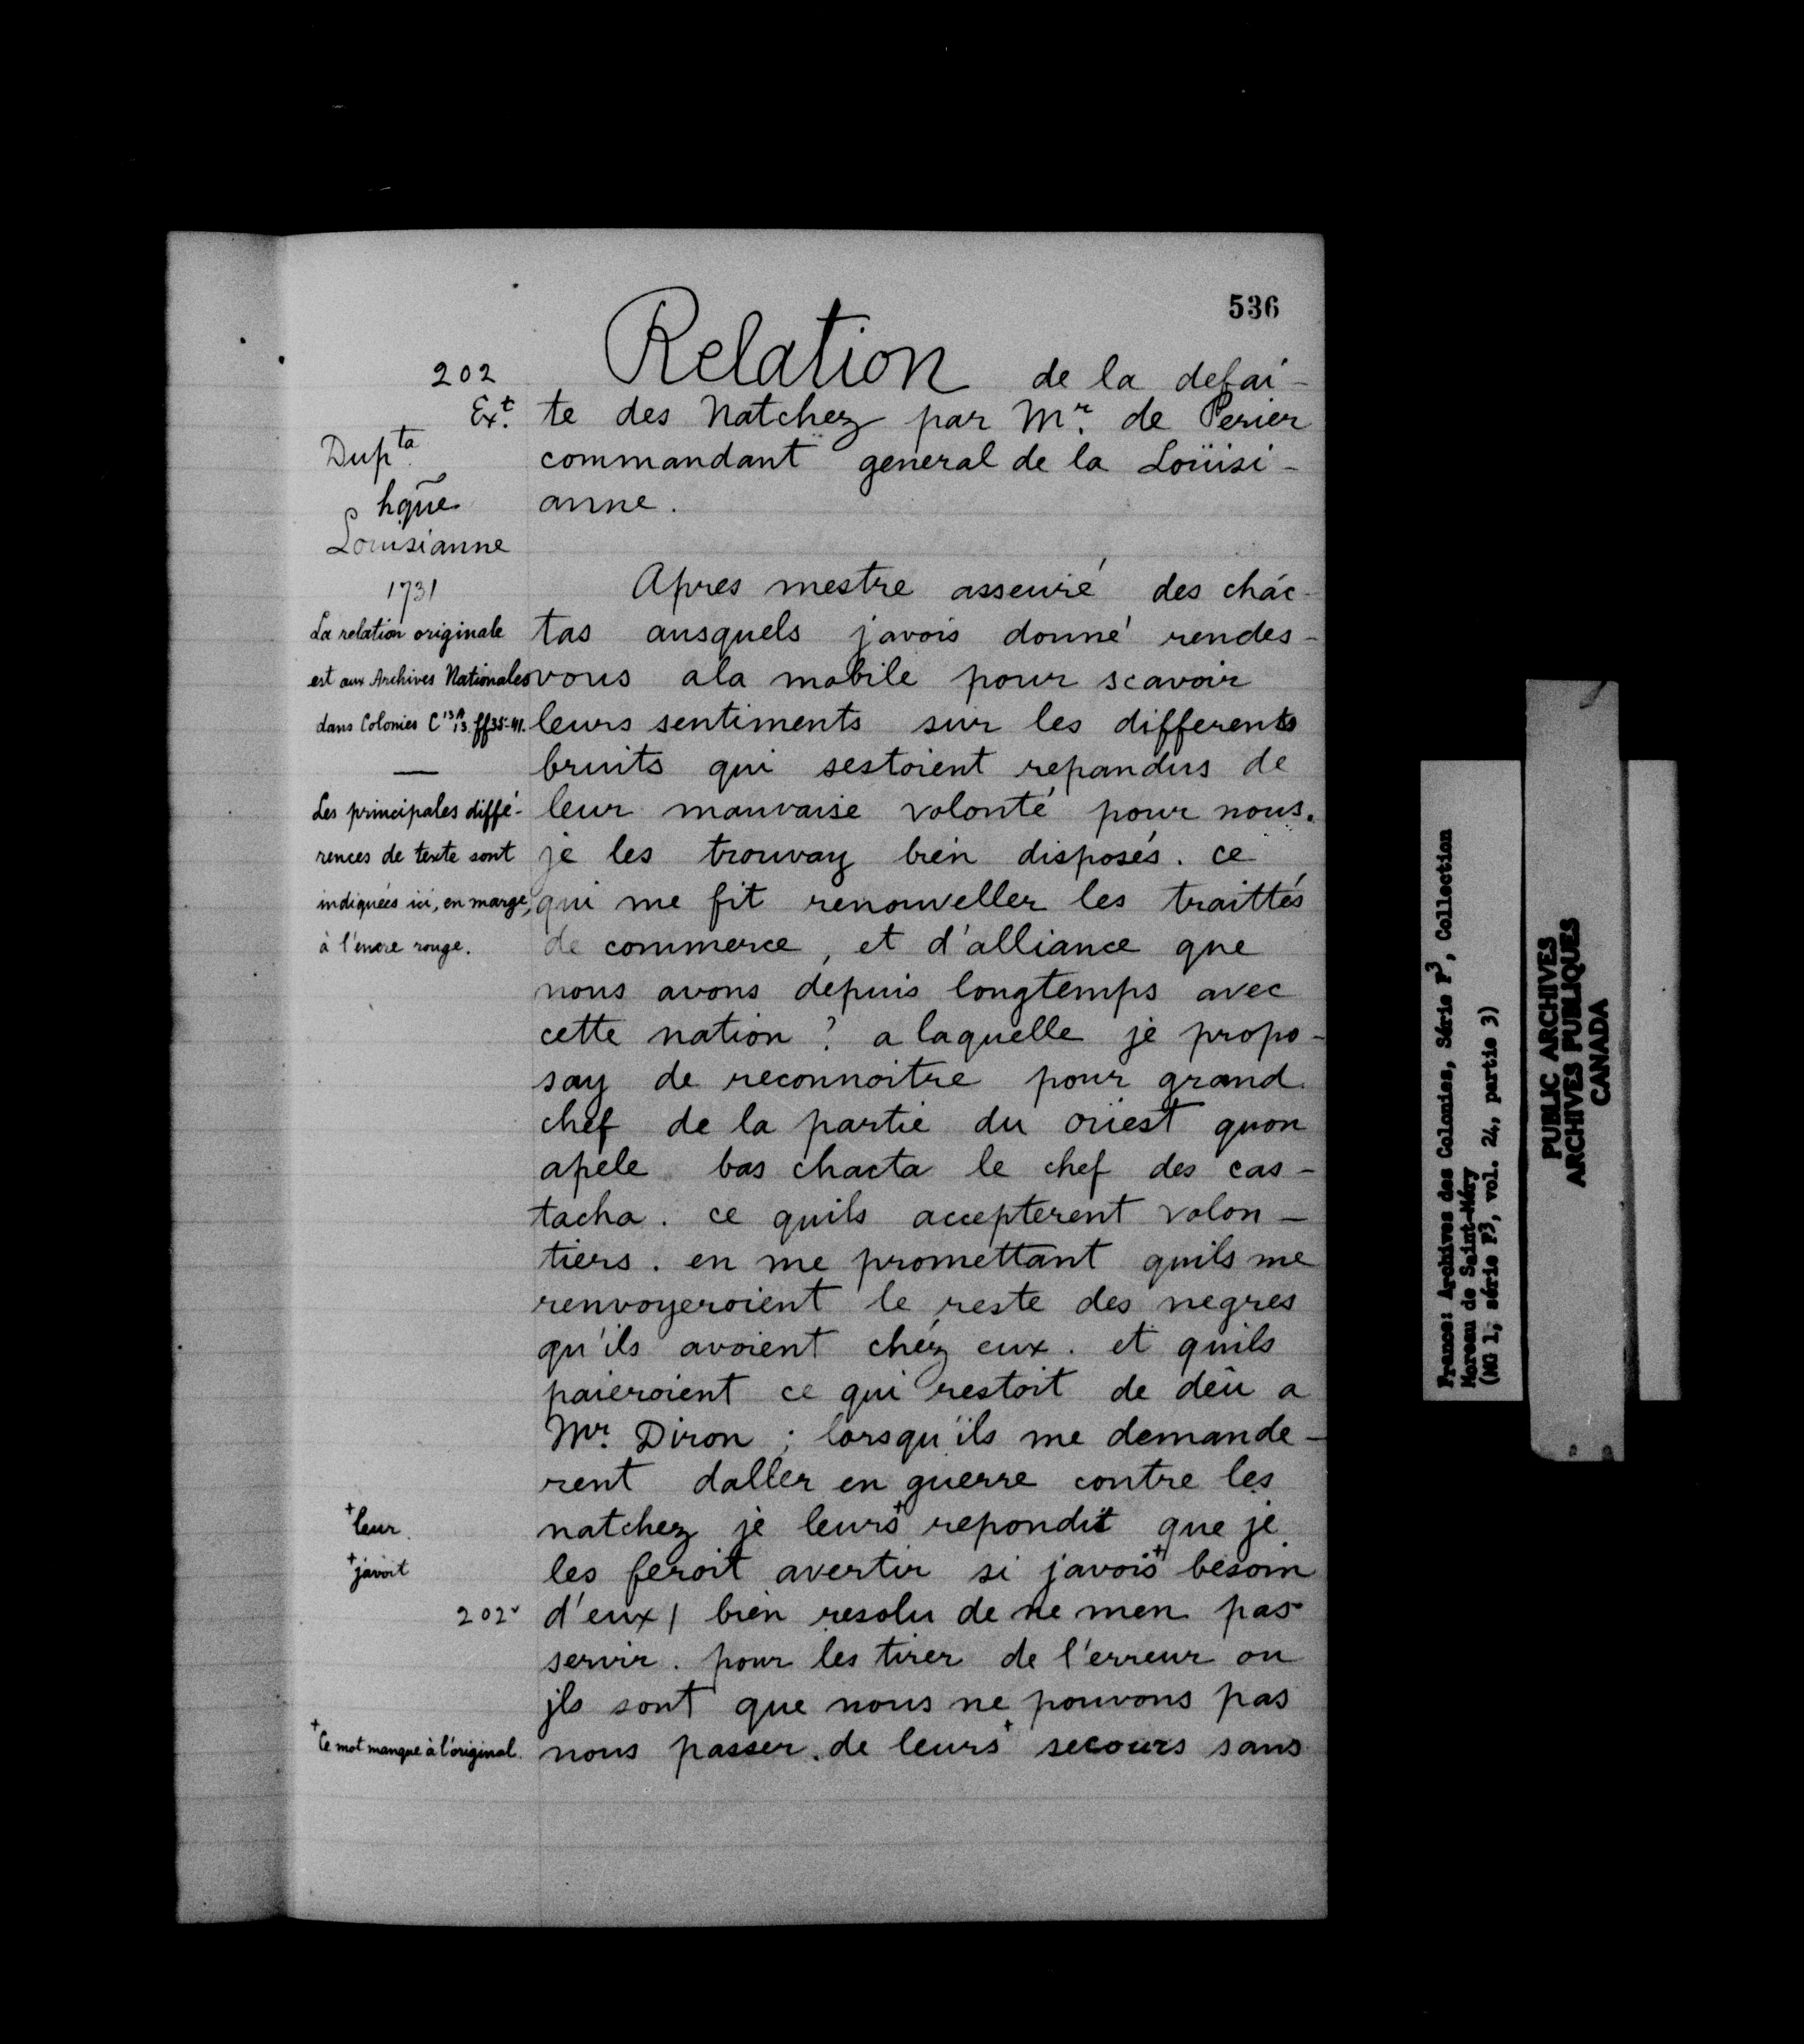 536
202
Ext.
Dupta.
hq̃ue
Louisianne
1731
La relation originale
est aux Archives Nationales
dans Colonies C13A 13. ff 35-41.
—
Les principales diffé-
rences de texte sont
indiquées ici, en marge,
à l'encre rouge.
Relation de la defai-
te des Natchez par Mr. de Perier
commandant general de la Loüisi-
anne.
Apres mestre asseuré des chác-
tas ausquels j'avois donné rendes-
vous ala mobile pour scavoir
leurs sentiments sur les differents
bruits qui sestoient repandus de
leur mauvaise volonté pour nous.
je les trouvay bien disposés. ce
qui me fit renouveller les traittés
de commerce, et d'alliance que
nous avons depuis longtemps avec
cette nation ? a laquelle je propo-
say de reconnoitre pour grand
chef de la partie du oüest quon
apele bas chacta le chef des cas-
tacha. ce quils accepterent volon-
tiers. en me promettant quils me
renvoyeroient le reste des negres
qu'ils avoient chéz eux. et quils
paieroient ce qui restoit de dêu a
Mr. Diron ; lorsqu'ils me demande-
rent daller en guerre contre les
natchez je leurs+ repondit que je
les feroit avertir si javois+ besoin
d'eux/ bien resolu de ne men pas
servir. pour les tirer de l'erreur ou
jls sont que nous ne pouvons pas
nous passer. de leurs+ secours sans
+leur.
+javoit
202v
+Ce mot manque à l'original.
France: Archives des Colonies, Série F3, Collection
Moreau de Saint-Méry
(MG 1, série F3, vol. 24, partie 3)
PUBLIC ARCHIVES
ARCHIVES PUBLIQUES
CANADA